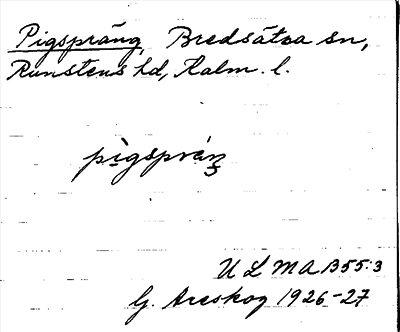 Pigspräng, Bredsätra sn,
Runstens hd, Kalm. l.
pìgspräŋ
ULMA 1355:3
G. Areskog 1926-27